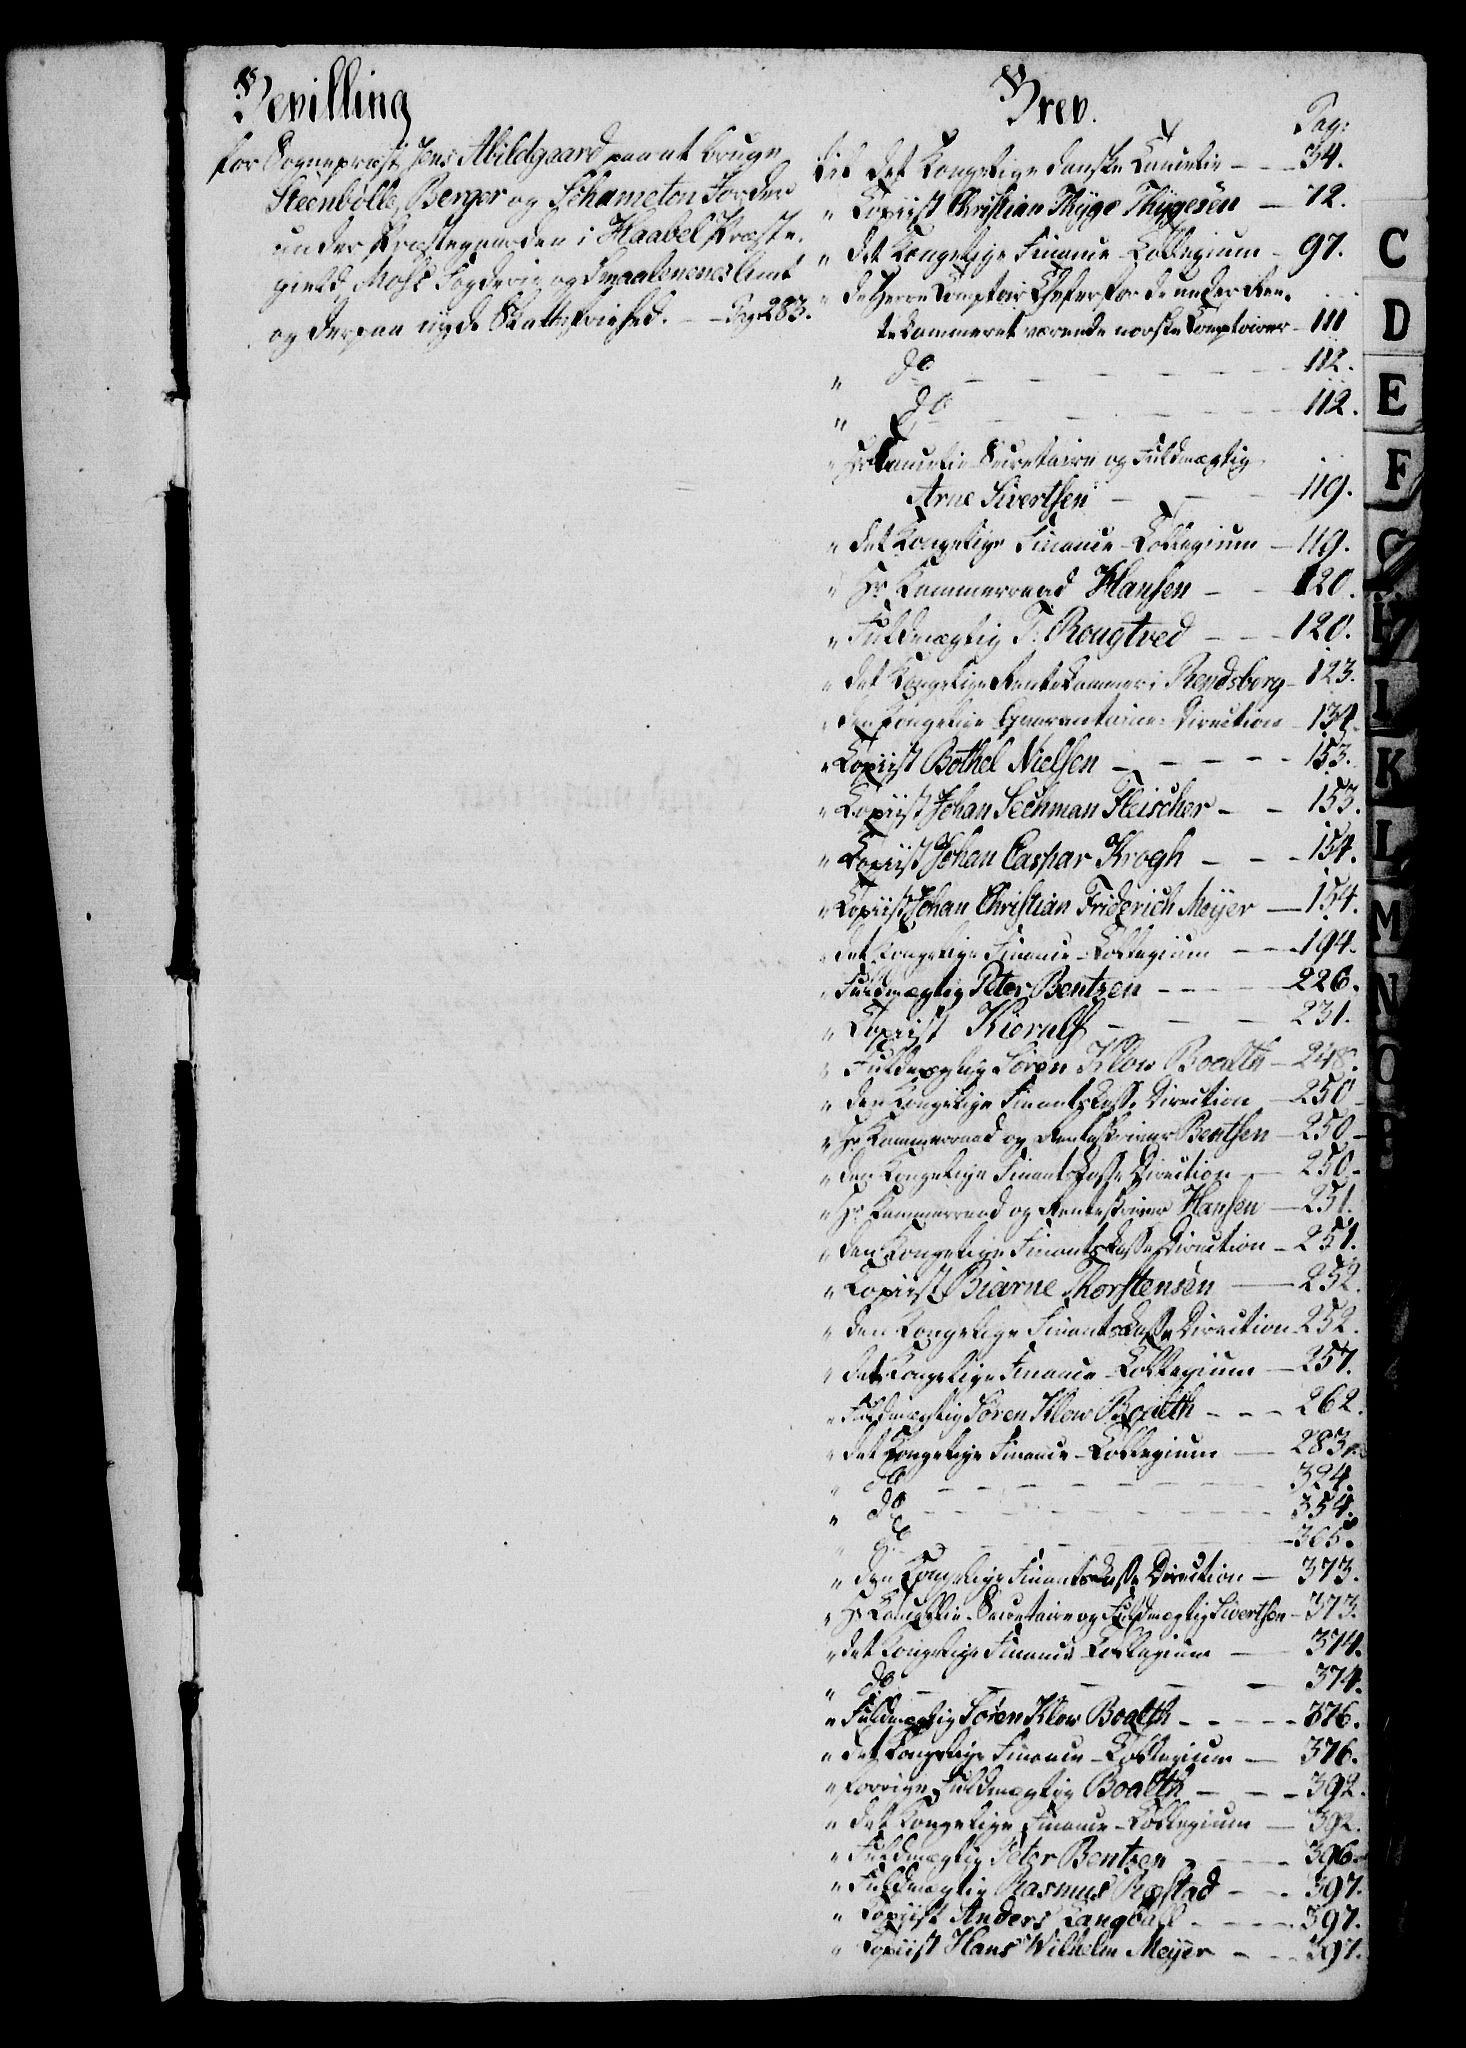 Bevilling
for Sognepræst Jens Abildgaard paa at bruge
Steenbølle, Berger og Schameton Jorder
under Præstegaarden i Haabel Præste-
gield, Mohs Fogderie og Smaalenenes Amt
og derpaa nyde Skattefriehed. — Pag: 283.
Brev.
Pag:
til det Kongelige danske Cancelie — 34.
" Copiist Christian Thyge Thygesen — 72.
" det Kongelige Finance-Collegium — 97.
" de Herrer Comptoir Chefer for de under Ren-
tekammeret værende norske Comptoirer — 111
" do — 112.
" do — 112.
" Hr Cancelie Secretaire og Fuldmægtig
Arne Sivertsen — 119.
" det Kongelige Finance-Collegium — 119.
" Hr Kammerraad Hansen — 120.
" Fuldmægtig T. Rougtved — 120.
" det Kongelige Rentekammer i Rendsborg — 123.
" den Kongelige Quarantaine-Direction — 134.
" Copiist Bothel Nielsen — 153.
" Copiist Johan Sechman Fleischer — 153.
" Copiist Johan Caspar Krogh — 154.
" Copiist Johan Christian Friderich Meijer — 154.
" det Kongelige Finance-Collegium — 194.
" Fuldmægtig Peter Bentzen — 226.
" Copiist Kierulf — 231.
" Fuldmægtig Søren Klow Boalth — 248.
" den Kongelige Finantskasse Direction — 250
" Hr Kammerraad og Renteskriver Bentsen — 250
" den Kongelige Finantskasse Direction — 250
" Hr Kammerraad og Renteskriver Hansen — 251.
" den Kongelige Finantskasse Direction — 251.
" Copiist Biarne Thorstensen — 252.
" den Kongelige Finantskasse Direction 252.
" det Kongelige Finance-Collegium — 257.
" Fuldmægtig Søren Klow Boalth — 262.
" det Kongelige Finance-Collegium — 283.
" do — 324.
" do — 354.
" do — 365.
" den Kongelige Finantskasse Direction — 373.
" Hr Cancellie-Secretaire og Fuldmægtig Sivertsen — 373.
" det Kongelige Finance-Collegium — 374.
" do — 374.
" Fuldmægtig Søren Klow Boalth — 376.
" det Kongelige Finance-Collegium — 376.
" forrige Fuldmægtig Boalth — 392.
" det Kongelige Finance-Collegium — 392.
" Fuldmægtig Peter Bentzen — 396.
" Fuldmægtig Rasmus Ræstad — 397.
" Copiist Anders Langball — 397.
" Copiist Hans Wilhelm Meijer — 397.
C
D
E
F
G
H
I
K
L
M
N
O